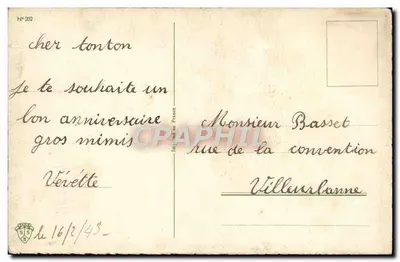 N° 202
cher tonton
je te souhaite un
bon anniversaire
gros mimis
Vévétte
le 16/2/43-
Monsieur Basset
rue de la convention
Villeurbanne
CRAPHIL